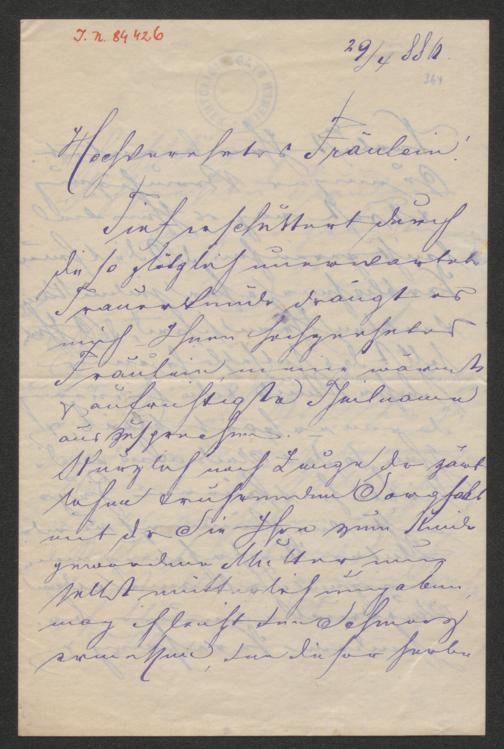 I. N. 84426
29/4 886.
364
Hochverehrtes Fräulein!
Tief erschüttert durch
die so plötzlich unerwartete
Trauerkunde drängt es
mich Ihnen hochgeehrtes
Fräulein meine wärmste
& aufrichtigste Theilname
auszusprechen.
Kürzlich noch Zeuge der zärt
lichen rührenden Sorgfalt
mit der Sie Ihre zum Kinde
gewordene Mutter nun
selbst mütterlich umgaben,
mag ich leicht den Schmerz
ermessen, den dieser herbe